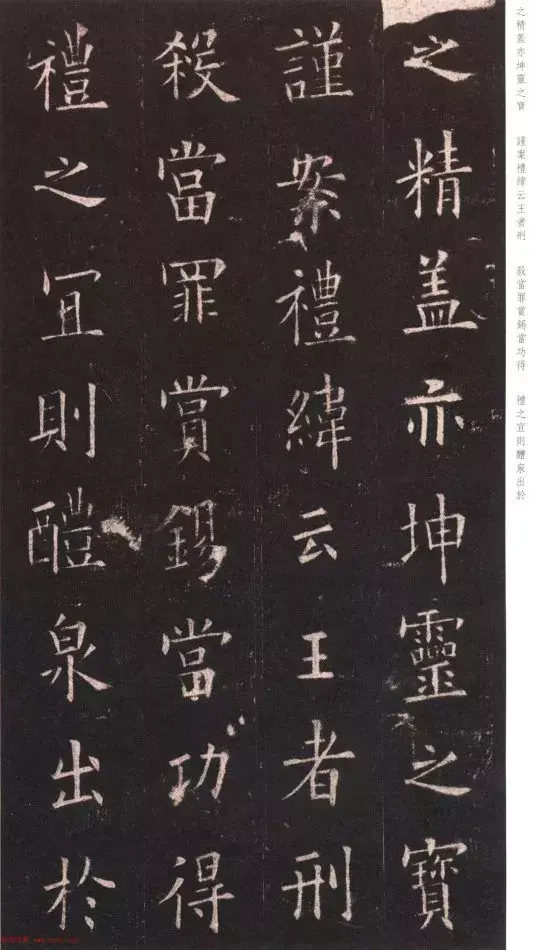 之精盖亦坤靈之寶
謹案禮緯云王者刑
殺當罪賞錫當功得
禮之宜則醴泉出於
之精蓋亦坤靈之寶　謹案禮緯云王者刑　殺當罪賞錫當功得　禮之宜則醴泉出於